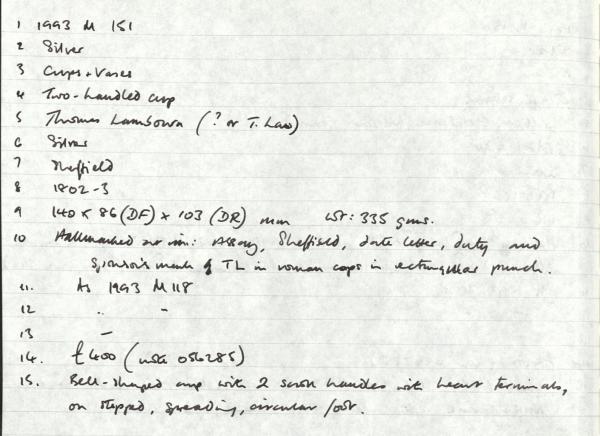 1 1993 M 151
2 Silver
3 Cups + Vases
4 Two-handled cup
5 Thomas Lambourn (? or T. Law)
6 Silver
7 Sheffield
8 1802-3
9 140 x 86 (DF) x 103 (DR) mm wt: 335 gms.
10 Hallmarked on rim: Assay, Sheffield, date letter, duty and
sponsor's mark of TL in roman caps in rectangular punch.
11. As 1993 M 118
12 " "
13 —
14. £400 (with 056285)
15. Bell-shaped cup with 2 scroll handles with heart terminals,
on stepped, spreading, circular foot.